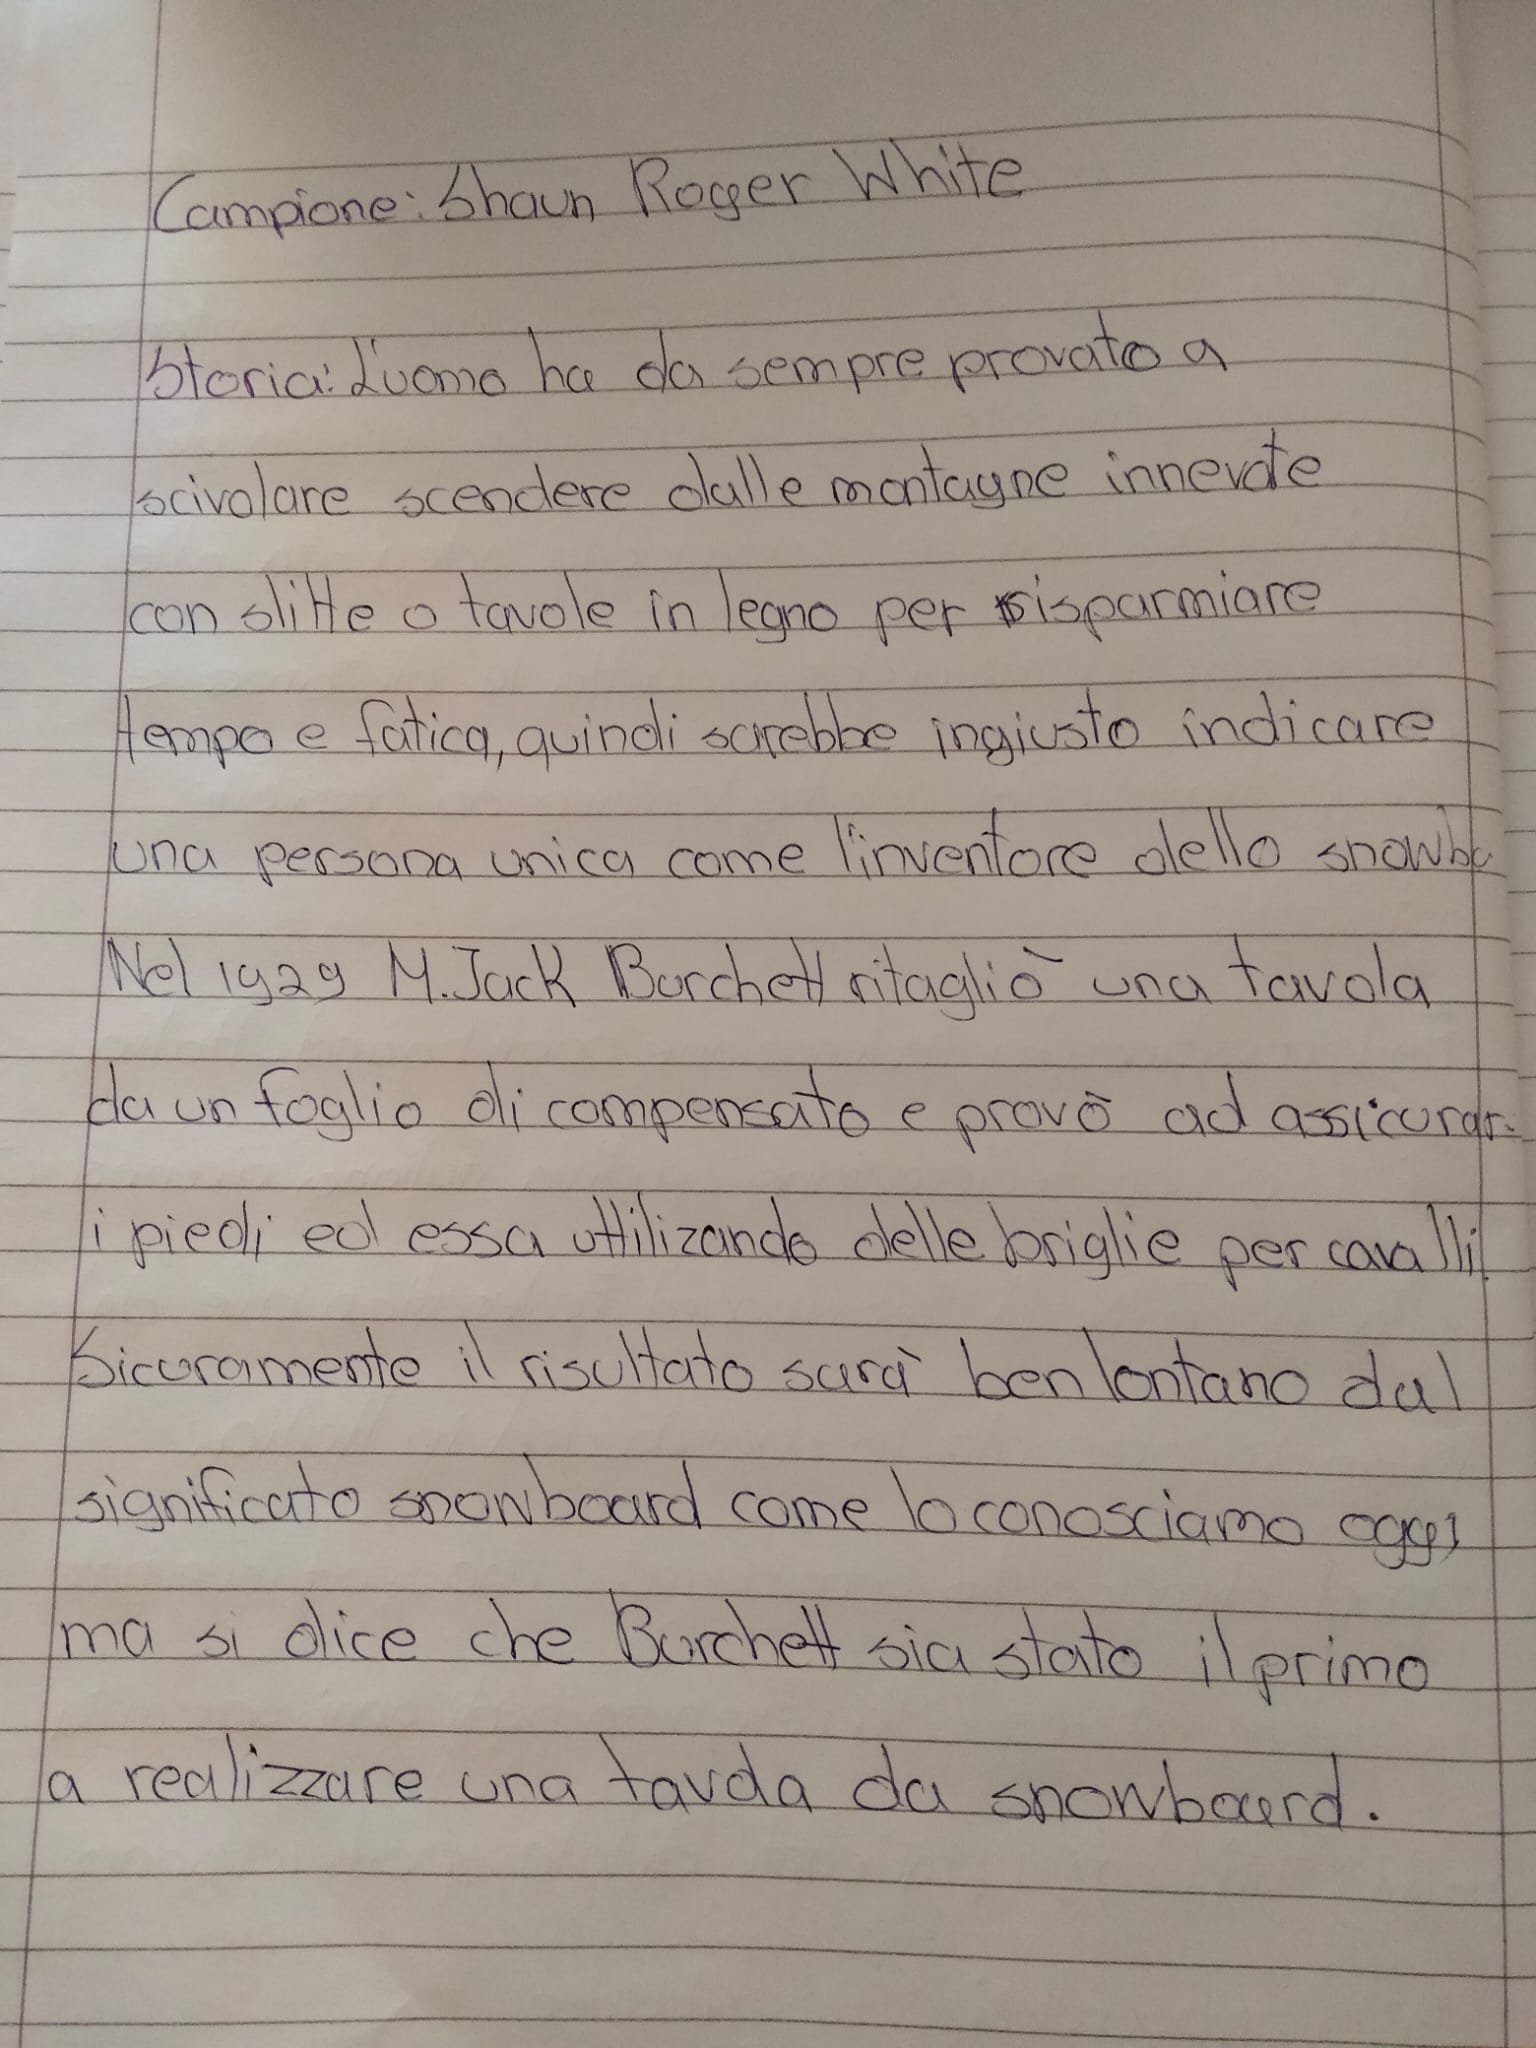 Campione: Shaun Roger White
Storia: L'uomo ha da sempre provato a
scivolare scendere dalle montagne innevate
con slitte o tavole in legno per risparmiare
tempo e fatica, quindi sarebbe ingiusto indicare
una persona unica come l'inventore dello snowbo
Nel 1929 M. Jack Burchett ritagliò una tavola
da un foglio di compensato e provò ad assicurar
i piedi ed essa uttilizando delle briglie per cavalli.
Sicuramente il risultato sarà ben lontano dal
significato snowboard come lo conosciamo oggi
ma si dice che Burchett sia stato il primo
a realizzare una tavola da snowboard.